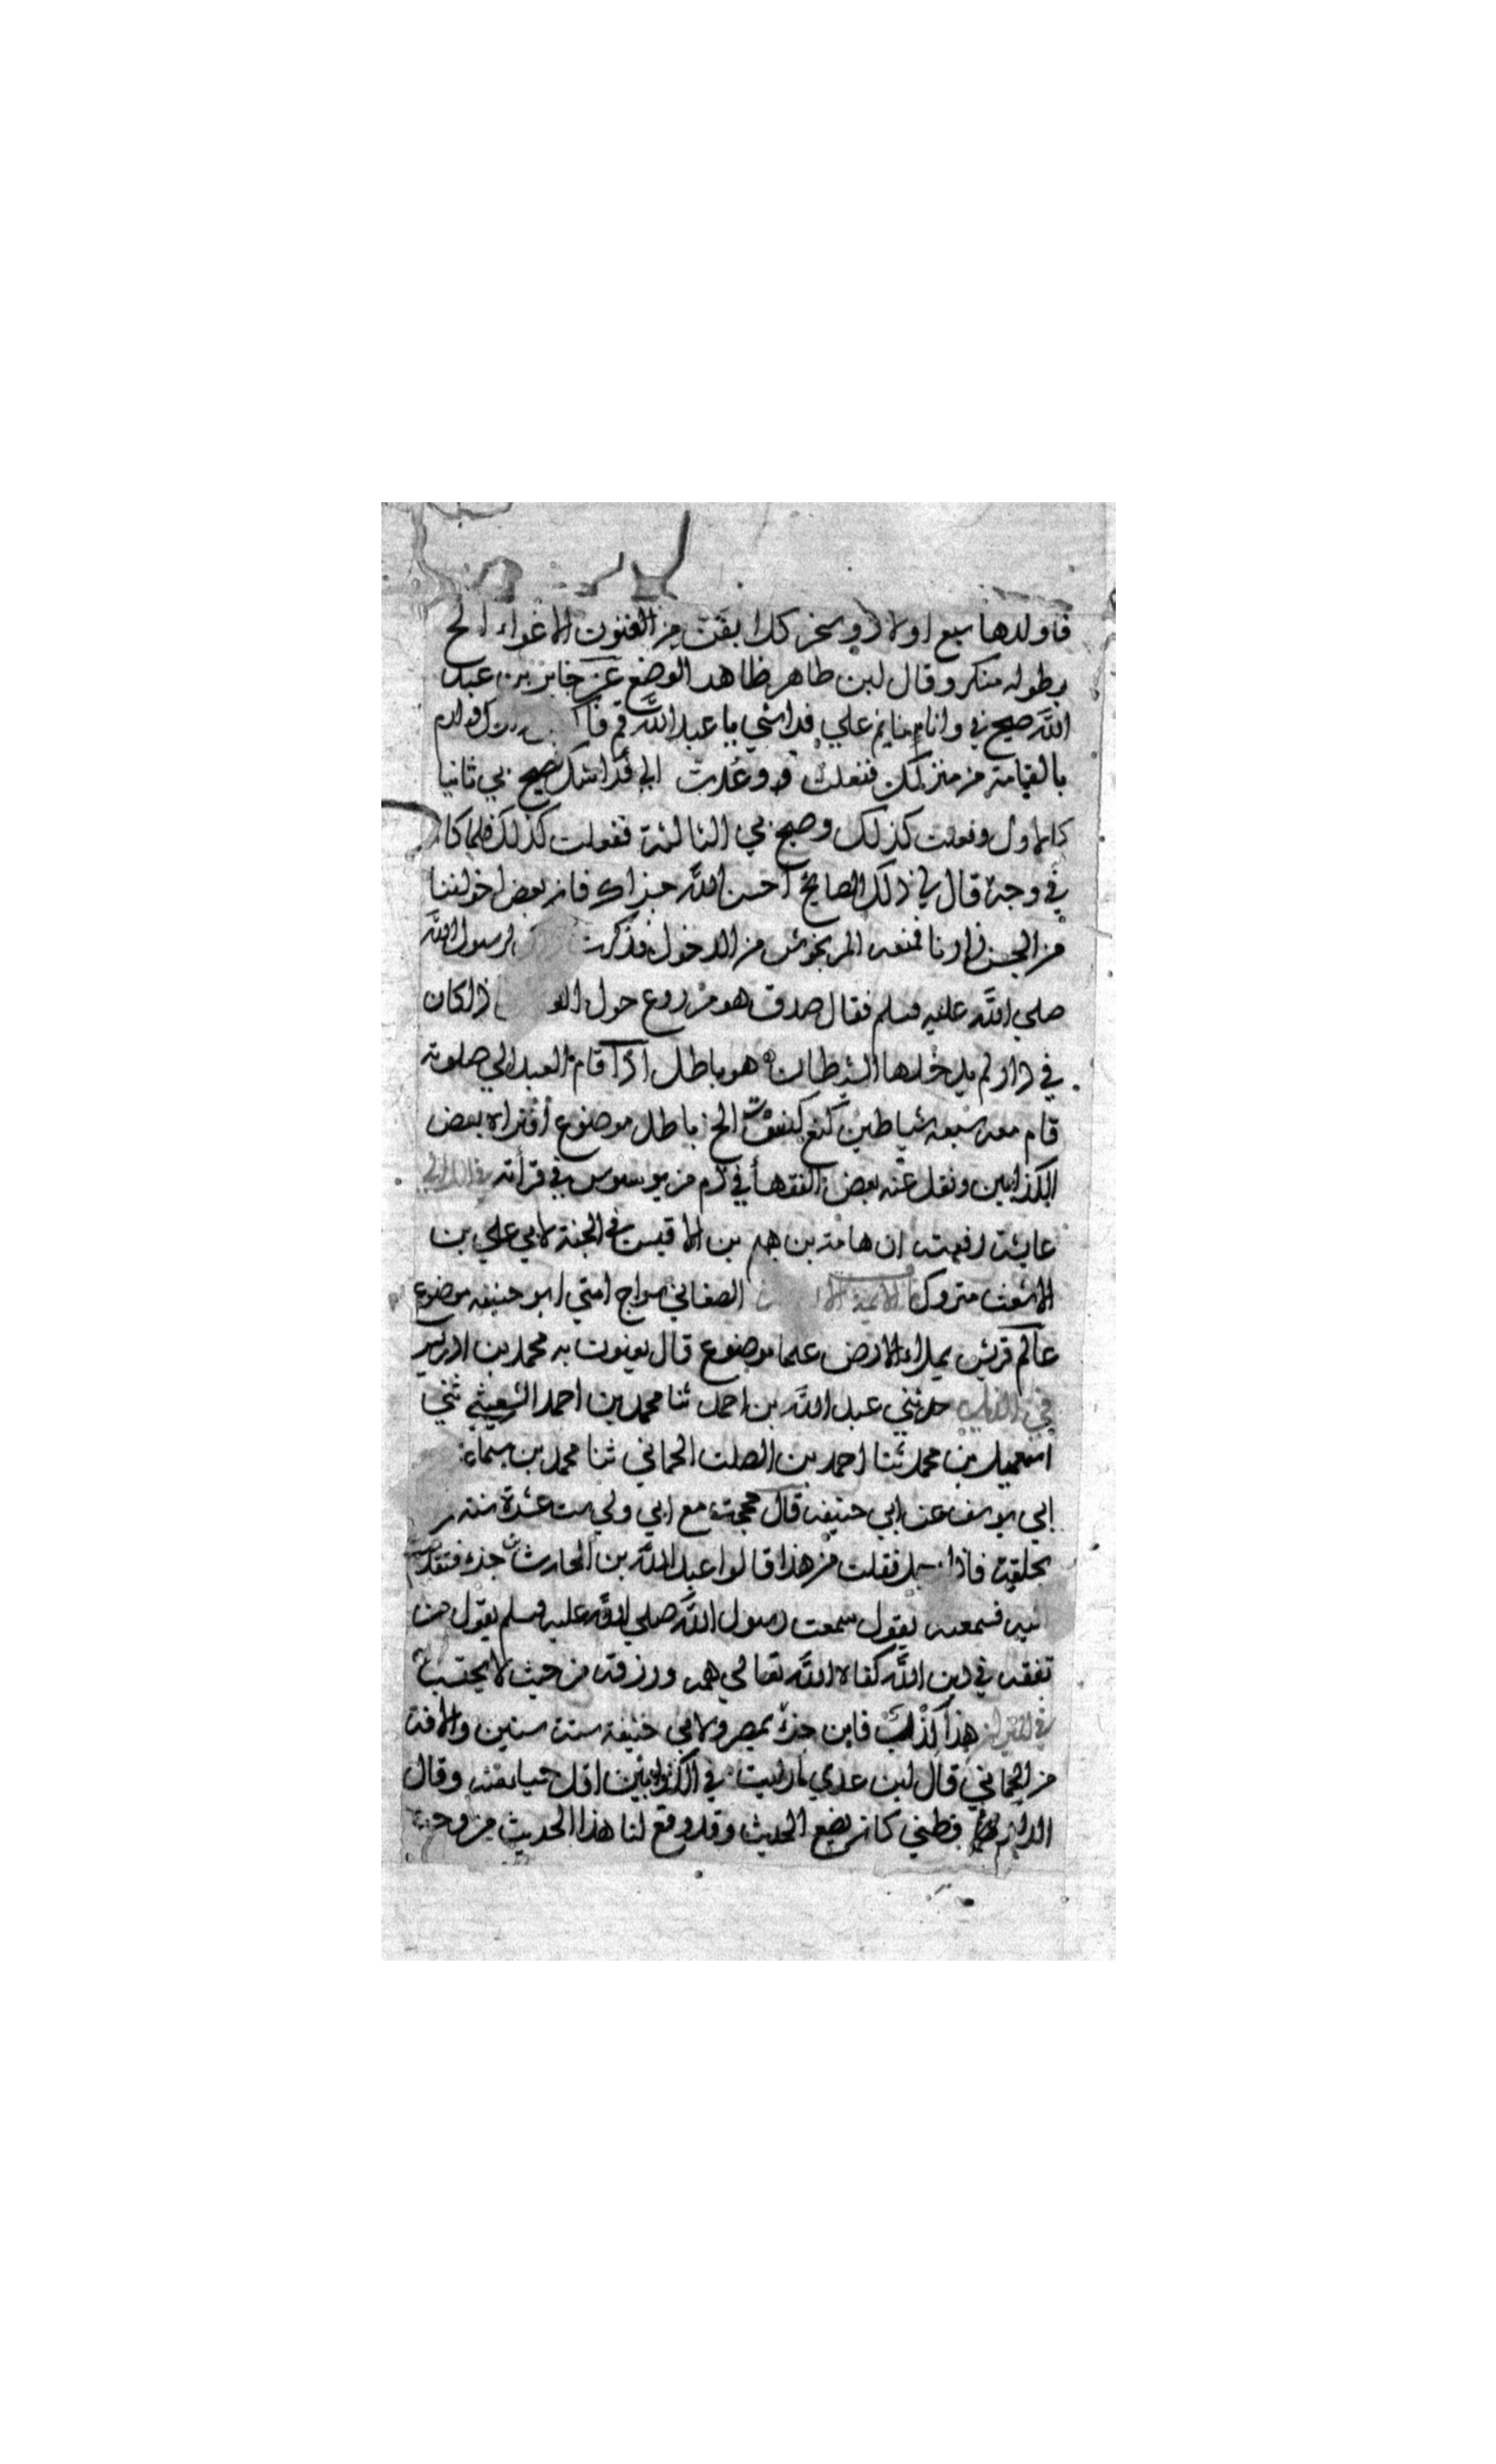 فاولدها سبع اولاد وسخر كلا بفن من الفنون الاغواء الخ
بطوله منكر وقال ابن طاهر ظاهر الوضع عن جابر بن عبد
الله صيح بي وانا نايم علي فراشي يا عبد الله قم
بالقيامة من منزلك ففعلت وعدت الي فراشك فصيح بي ثانيا
كالاول وفعلت كذلك وصيح بي الثالثة ففعلت كذلك فلما كا
في وجهة قال لي ذلك الصايح احسن الله جزاك فان بعض اخواننا
من الجن زارنا فمنعه المرنجوش من الدخول فذكرت لرسول الله
صلي الله عليه وسلم فقال صدق هو مزروع حول اذا كان
في دار لم يدخلها الشيطان هو باطل اذا قام العبد الي صلوته
قام معه سبعة شياطين الخ باطل موضوع افتراه بعض
الكذابين ونقل عنه بعض الفقهأ في ذم من يوسوس في قرأته في اللالي
عايشة رفعته ان هامة بن هيم بن الاقيس في الجنة لابي علي بن
الاشعث متروك الصغاني سراج امتي ابو حنيفه موضوع
عالم قريش يملاء الارض علما موضوع قال يعنون به محمد بن ادريس
في الذيل حدثني عبد الله بن احمد ثنا محمد بن احمد الشعيثي ثني
اسمعيل بن محمد ثنا احمد بن الصلت الحماني ثنا محمد بن سماعة
ابي يوسف عن ابي حنيفه قال حججت مع ابي ولي ست عشرة سنة
بحلقة فاذا رجل فقلت من هذا قالوا عبد الله بن الحارث بن جزء فتقدمت
اليه فسمعته يقول سمعت رسول الله صلي الله عليه وسلم يقول من
تفقه في دين الله كفاه الله تعالي همه ورزقه من حيث لا يحتسب
في الميزان هذا كذب فابن جزء بمصر ولابي حنيفه ست سنين والافة
من الحماني قال ابن عدي ما رايت في الكذابين اقل حيا منه وقال
الدار قطني كان يضع الحديث وقد وقع لنا هذا الحديث من وجه